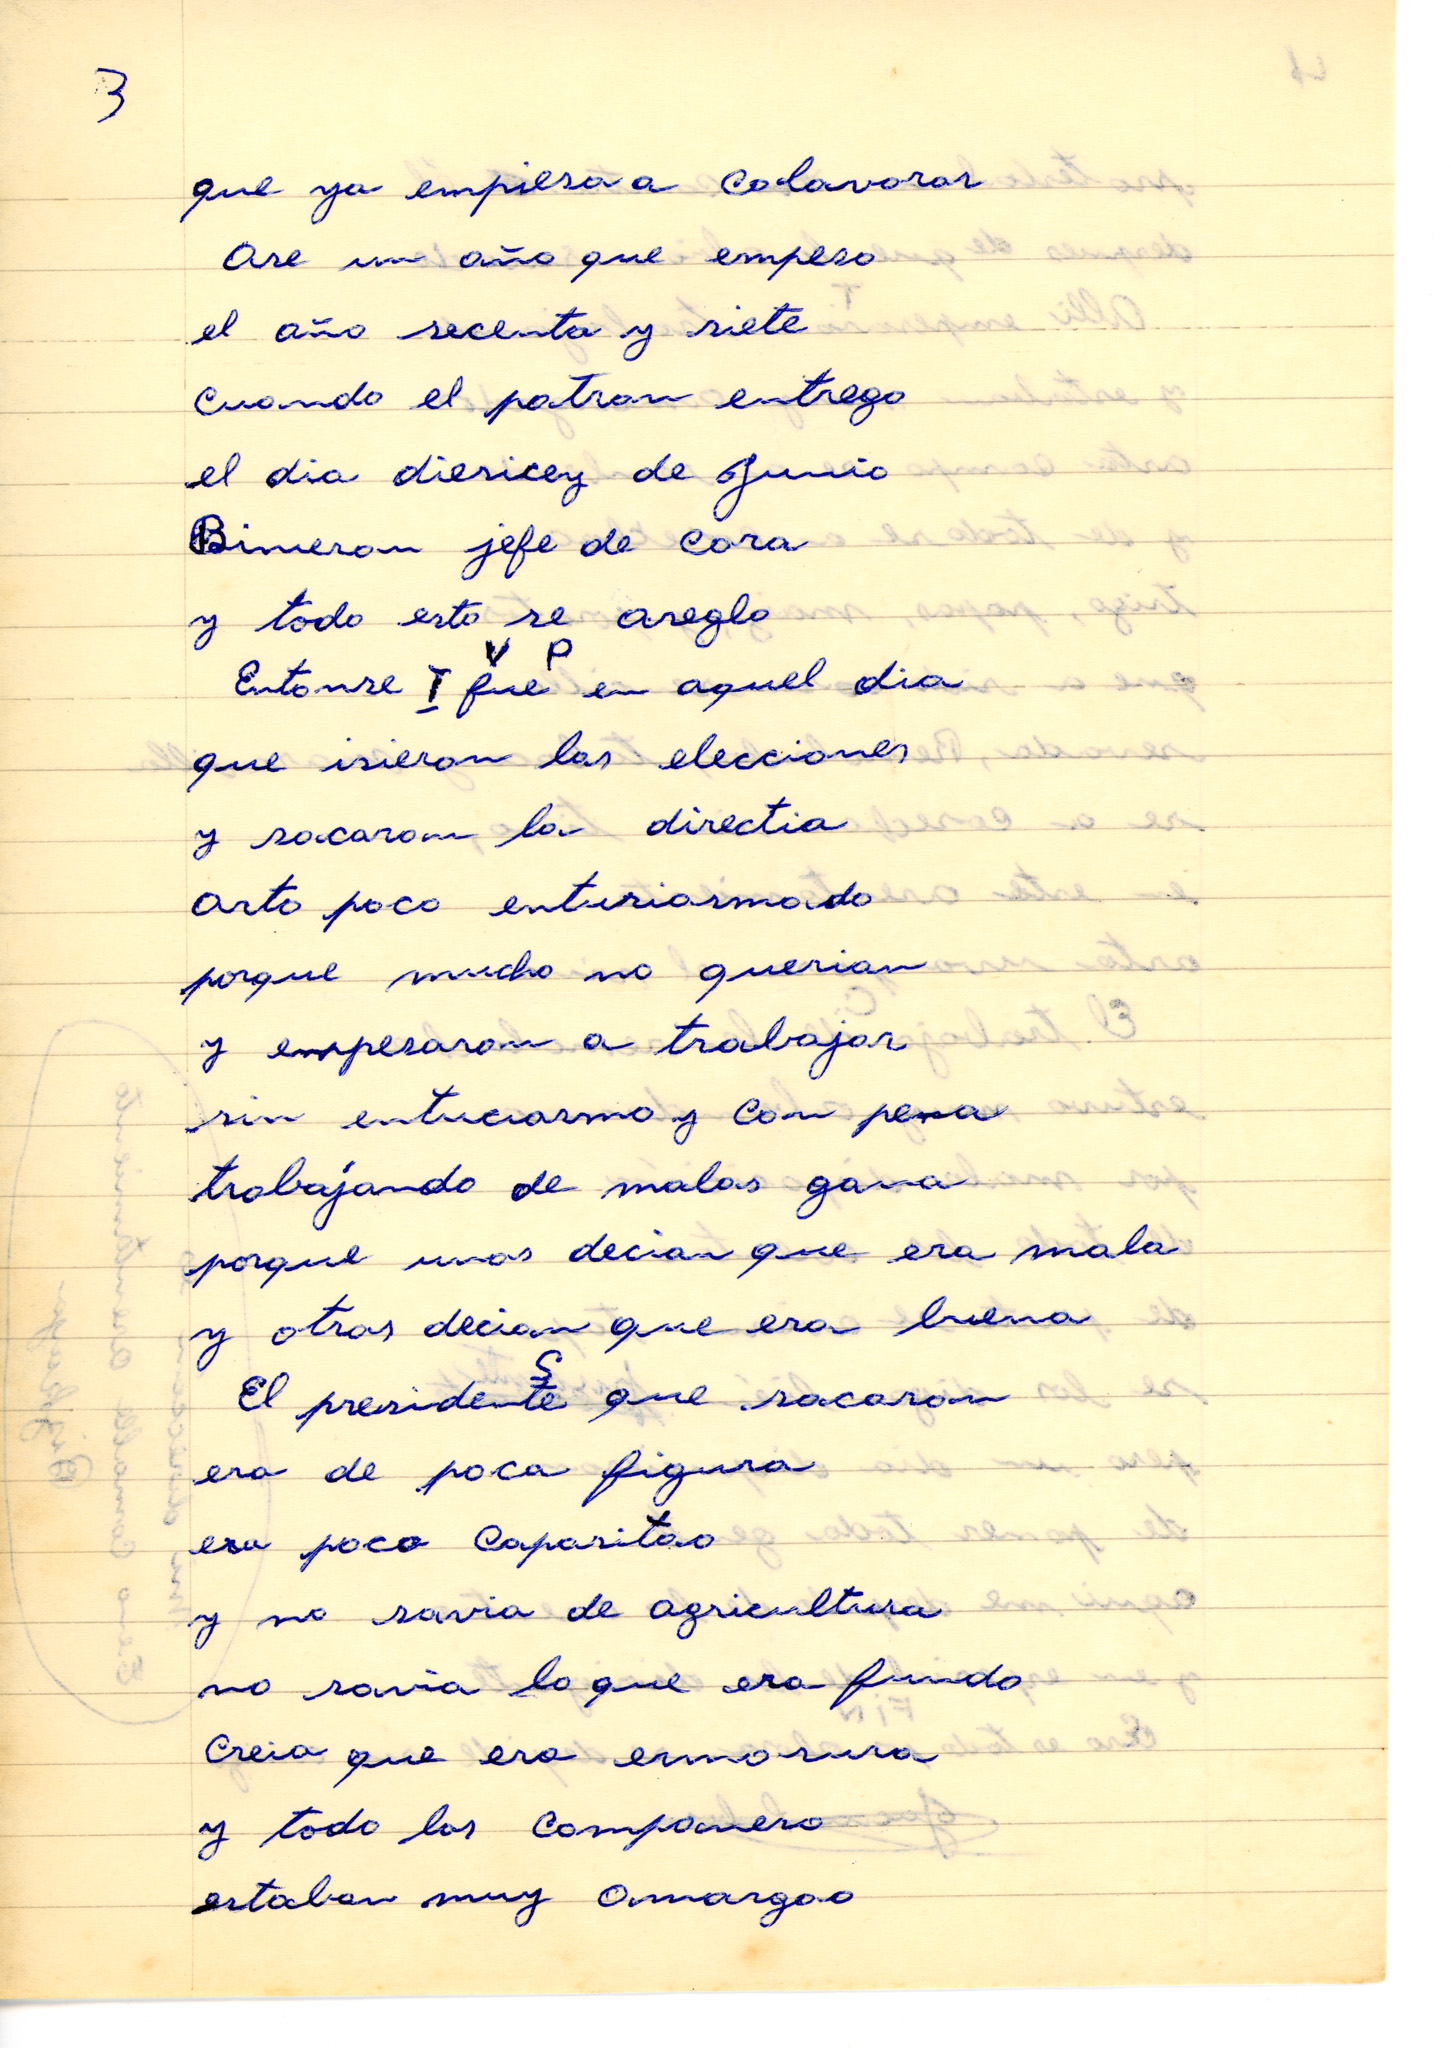 3
que ya empiesa a colavorar
Ase un año que empeso
el año secenta y siete
cuando el patron entrego
el dia diesicey de Junio
Binieron jefe de cora
y todo esto se areglo
V P
Entonse I fue en aquel dia
que isieron las elecciones
y sacaron la directia
arto poco entusiasmado
porque mucho no querian
y empesaron a trabajar
sin entuciasmo y con pena
trabajando de malas gana
porque unos decian que era mala
y otros decian que era buena
S
El presidente que sacaron
era de poca figura
era poco capasitao
y no savia de agricultura
no savia lo que era fundo
creia que era ermosura
y todo los companero
estaban muy amargao